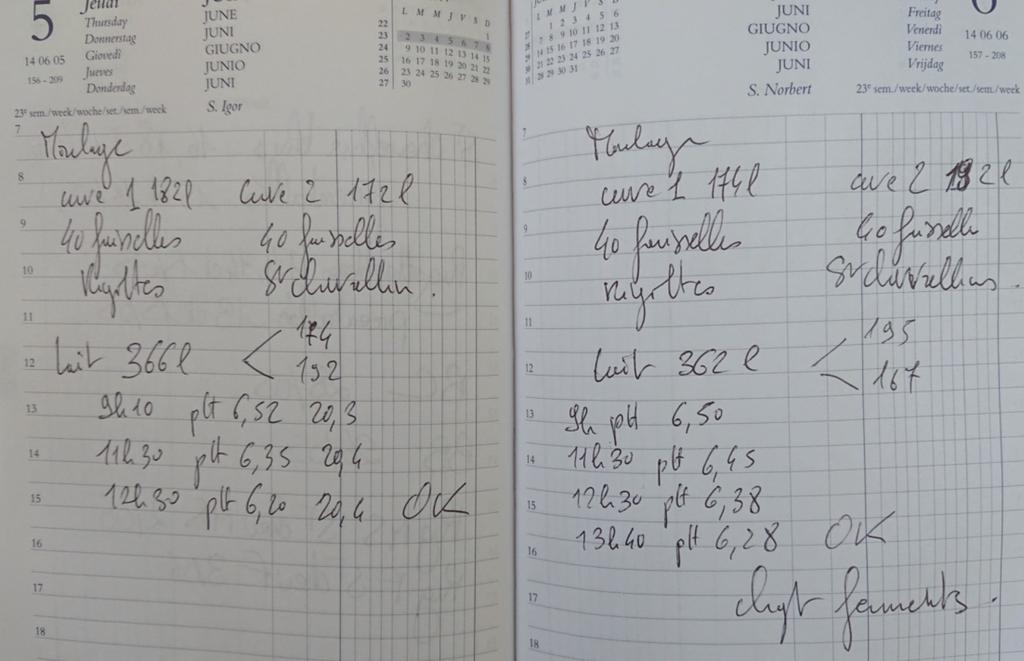 5
Jeudi
Thursday
Donnerstag
Giovedì
Jueves
Donderdag
14 06 05
156 - 209
JUNE
JUNI
GIUGNO
JUNIO
JUNI
S. Igor
23e sem./week/woche/set./sem./week
L M M J V S D
22 1
23 2 3 4 5 6 7 8
24 9 10 11 12 13 14 15
25 16 17 18 19 20 21 22
26 23 24 25 26 27 28 29
27 30
7
Moulage
8
cuve 1 182l cuve 2 172l
9
40 faisselles 40 faisselles
10
Rigottes St Marcellin.
11
174
12
lait 366l < 192
13
9h10 pH 6,52 20,3
14
11h30 pH 6,35 20,4
15
12h30 pH 6,20 20,4 OK
16
17
18
JUNI
GIUGNO
JUNIO
JUNI
Freitag
Venerdì
Viernes
Vrijdag
6
14 06 06
157 - 208
L M M J V S D
1 2 3 4 5 6
7 8 9 10 11 12 13
14 15 16 17 18 19 20
21 22 23 24 25 26 27
28 29 30 31
S. Norbert
23e sem./week/woche/set./sem./week
7
Moulage
8
cuve 1 174l cuve 2 192l
9
40 faisselles 40 faisselle
10
Rigottes
11
195
12
lait 362 l < 167
13
9h pH 6,50
14
11h30 pH 6,45
15
12h30 pH 6,38
13h40 pH 6,28 OK
16
17
chgt ferments.
18